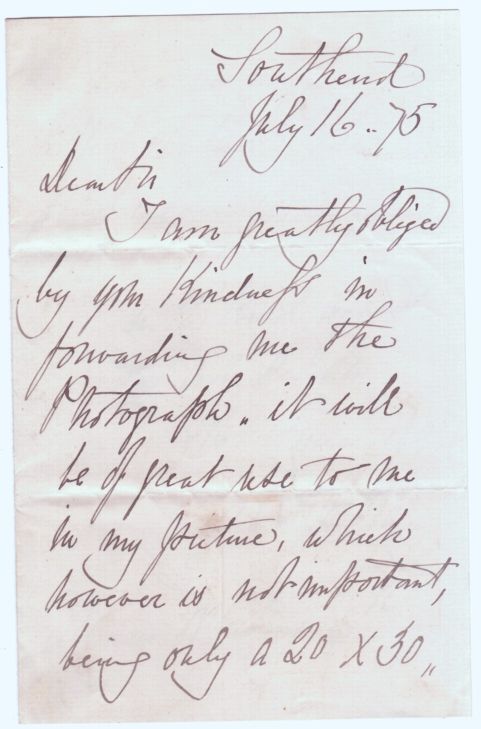 Southend
July 16.. 75
Dear Sir
I am greatly obliged
by your Kindness in
forwarding me the
Photograph.. it will
be of great use to me
in my picture, which
however is not important,
being only a 20 X 30..